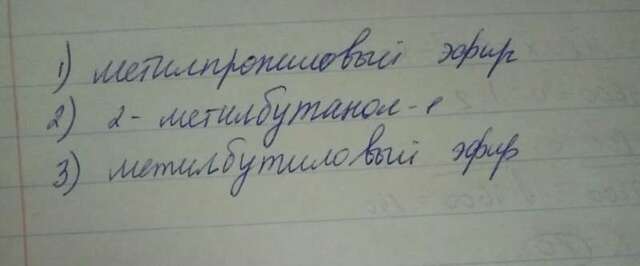 1) метилпропиловый эфир
2) 2-метилбутанол-1
3) метилбутиловый эфир